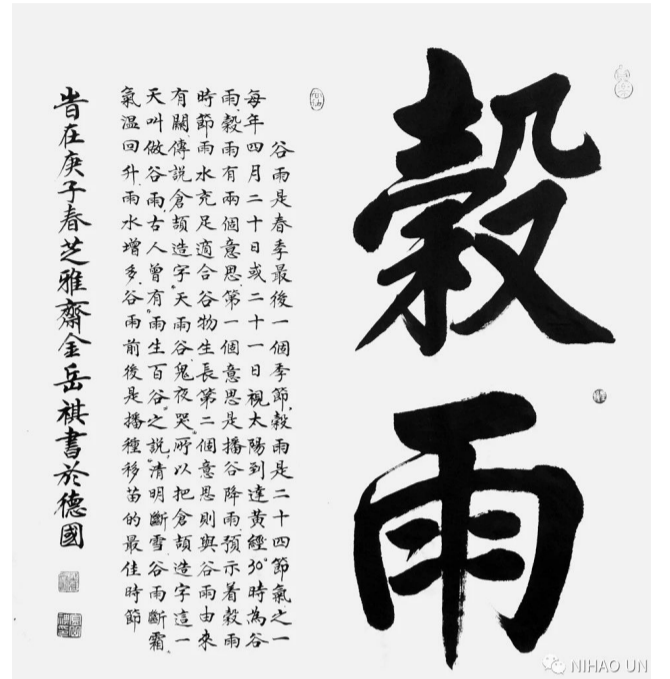 穀雨
谷雨是春季最後一個季節,穀雨是二十四節氣之一
每年四月二十日或二十一日視太陽到達黃經30°時為谷
雨,穀雨有兩個意思,第一個意思是播谷降雨,預示着穀雨
時節雨水充足適合谷物生長,第二個意思則與谷雨由來
有關,傳說倉頡造字,"天雨谷鬼夜哭",所以把倉頡造字這一
天叫做谷雨,古人曾有"雨生百谷"之說,"清明斷雪谷雨斷霜"
氣溫回升,雨水增多,谷雨前後是播種移苗的最佳時節
旹在庚子春芝雅齋金岳祺書於德國
NIHAO UN